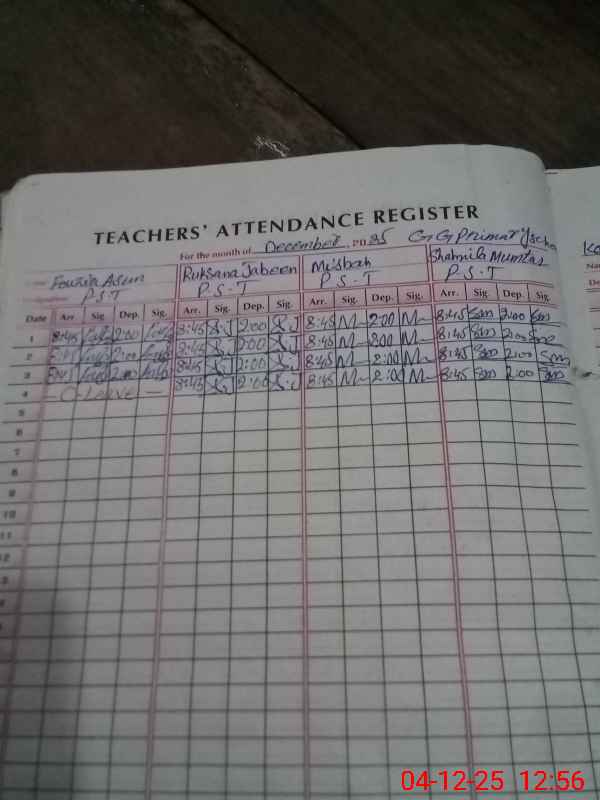 TEACHERS' ATTENDANCE REGISTER
For the month of December, PD 25 G G Primary
Fouzia Ruksana Jabeen Misbah Shahnila Mumtas
P.S.T P.S.T P.S.T P.S.T
Date Arr. Sig. Dep. Sig. Arr. Sig. Dep. Sig. Arr. Sig. Dep. Sig. Arr. Sig. Dep. Sig.
1 8:45 2:00 8:45 S.J 2:00 S.J 8:45 M 2:00 M 8:45 Sm 2:00 Sm
2 2:00 8:45 S.J 2:00 S.J 8:45 M 2:00 M 8:45 Sm 2:00 Sm
3 2:00 8:45 S.J 2:00 S.J 8:45 M 2:00 M 8:45 Sm 2:00 Sm
4 — C-Leave — 8:45 S.J 2:00 S.J 8:45 M 2:00 M 8:45 Sm 2:00 Sm
5
6
7
8
9
10
11
12
04-12-25 12:56